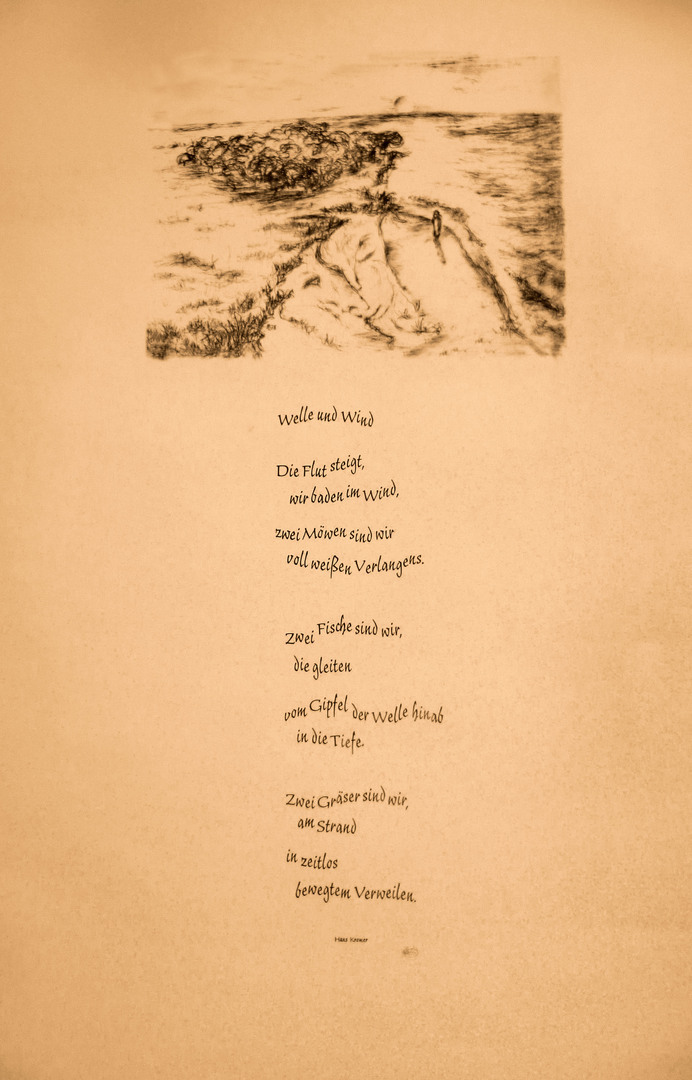 Welle und Wind
Die Flut steigt,
wir baden im Wind,
zwei Möwen sind wir
voll weißen Verlangens.
Zwei Fische sind wir,
die gleiten
vom Gipfel der Welle hinab
in die Tiefe.
Zwei Gräser sind wir,
am Strand
in zeitlos
bewegtem Verweilen.